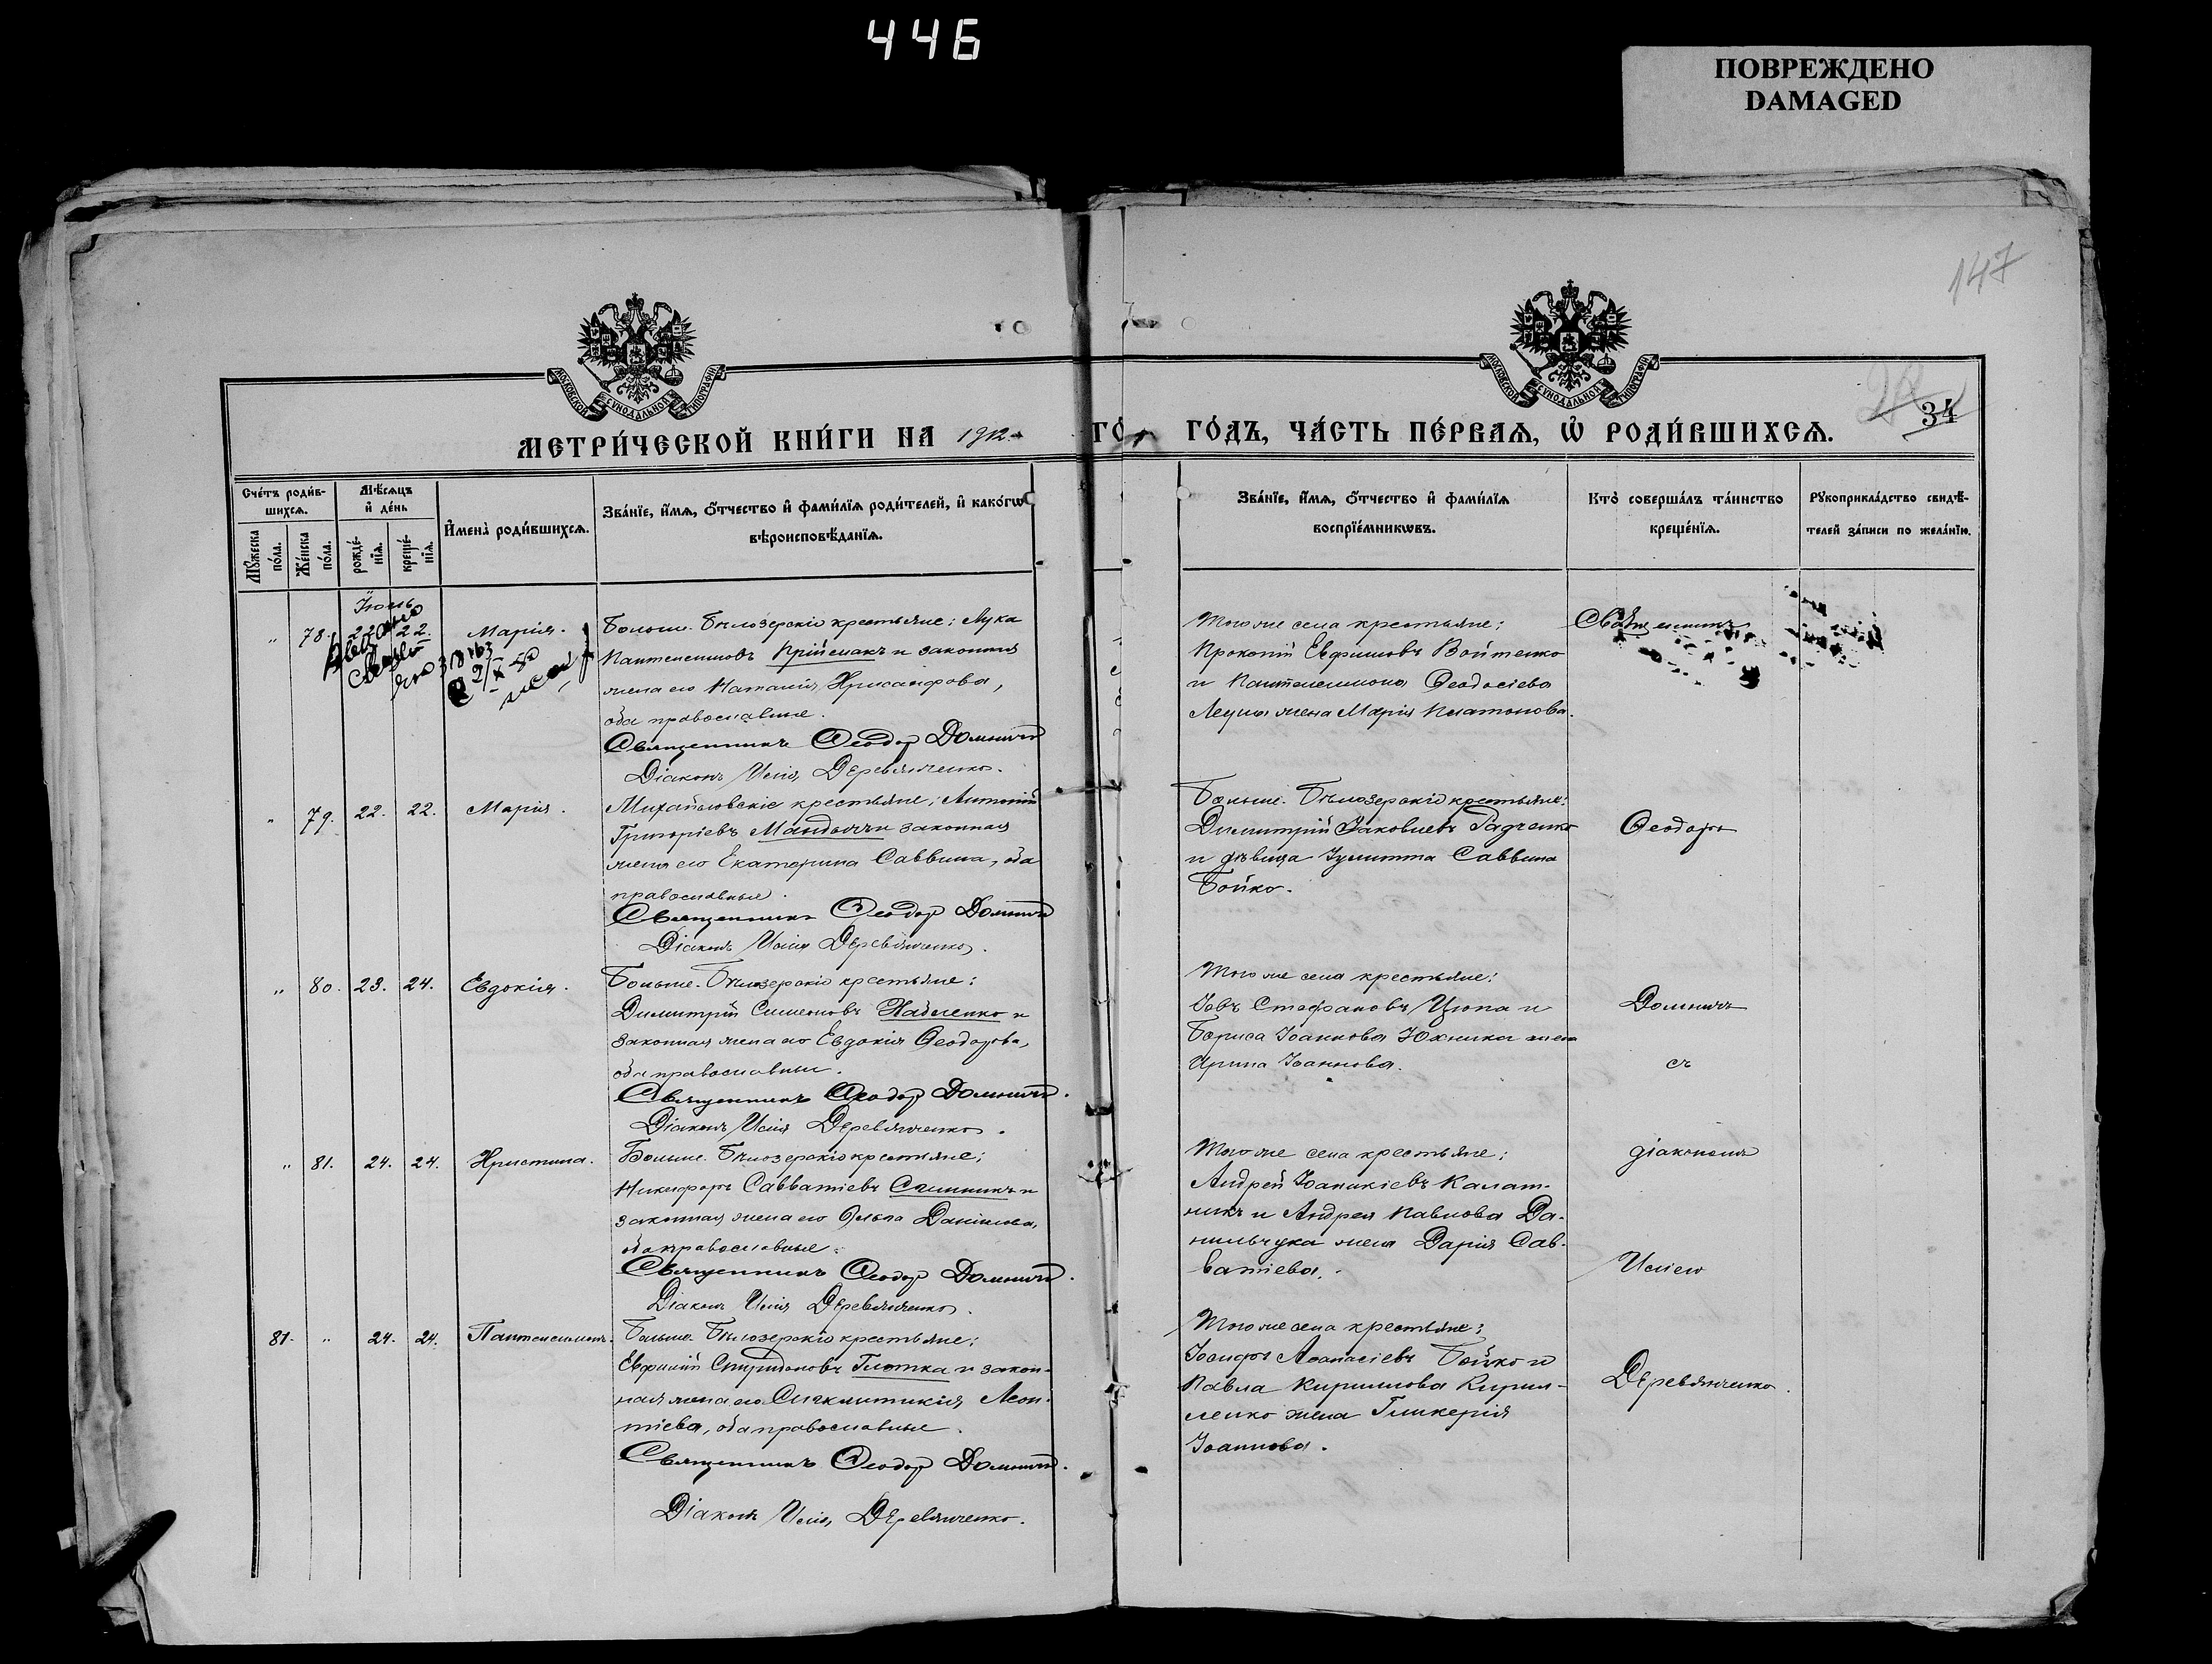 446
ПОВРЕЖДЕНО
DAMAGED
147
МОСКОВСКОЙ СѴНОДАЛЬНОЙ ТИПОГРАФІИ
МЕТРИ́ЧЕСКОЙ КНИ́ГИ НА 1912
МОСКОВСКОЙ СѴНОДАЛЬНОЙ ТИПОГРАФІИ
34
ГО́ДЪ, ЧА́СТЬ ПЕ́РВАѦ, Ѡ҆ РОДИ́ВШИХСѦ.
Сче́тъ роди́в-
шихсѧ.
Мꙋ́жеска по́ла.
Же́нска по́ла.
Мѣ́сѧцъ и҆ де́нь
рожде́-
нїѧ.
креще́-
нїѧ.
И҆мена̀ роди́вшихсѧ.
Зва́нїе, и҆́мѧ, ѻ҆́тчество и҆ фами́лїѧ роди́телей, и҆ како́гѡ
вѣроисповѣ́данїѧ.
Зва́нїе, и҆́мѧ, ѻ҆́тчество и҆ фами́лїѧ
воспрїе́мникѡвъ.
Кто̀ соверша́лъ та́инство
креще́нїѧ.
Рꙋкоприкла́дство свидѣ́-
телей за́писи по жела́нїю.
Іюль
" 78. 22. 22. Марія.
Больше-Бѣлозерскіе крестьяне: Лука
Пантелеимовъ Пріймакъ и законная
жена его Наталія Хрисанфова,
оба православные.
Священникъ Ѳеодор Домничъ
Діаконъ Исаія Деревянченко.
Того же села крестьяне:
Прокопій Евфимовъ Войтенко
и Пантелеимона Ѳеодосіева
жена Марія Платонова.
Священникъ
" 79. 22. 22. Марія.
Михайловскіе крестьяне: Антоній
Григоріевъ и законная
жена его Екатерина Саввина, оба
православные.
Священникъ Ѳеодор Домничъ
Діаконъ Исаія Деревянченко.
Больше-Бѣлозерскіе крестьяне:
Димитрій Іаковлевъ Радченко
и дѣвица Іулитта Саввина
Бойко.
Ѳеодоръ
" 80. 23. 24. Евдокія.
Больше-Бѣлозерскіе крестьяне:
Димитрій Симеоновъ и
законная жена его Евдокія Ѳеодорова,
оба православные.
Священникъ Ѳеодор Домничъ.
Діаконъ Исаія Деревянченко.
Того же села крестьяне:
Іовъ Стефановъ Цюпа и
Бориса Іоаннова Юхника жена
Ирина Іоаннова.
Домничъ
съ
" 81. 24. 24. Христина.
Больше-Бѣлозерскіе крестьяне:
Никифоръ Савватіевъ и
законная жена его Ѳекла Даніилова,
оба православные.
Священникъ Ѳеодор Домничъ.
Діаконъ Исаія Деревянченко.
Того же села крестьяне:
Андрей Іоаникіевъ Калат-
никъ и Андрея Павлова Да-
нильчука жена Дарія Сав-
ватіева.
діакономъ
Исаіею
81. " 24. 24. Пантелеимонъ.
Больше-Бѣлозерскіе крестьяне:
Евфимій Спиридоновъ Глотка и закон-
ная жена его Синклитикія Леон-
тіева, оба православные.
Священникъ Ѳеодор Домничъ.
Діаконъ Исаія Деревянченко.
Того же села крестьяне:
Іосифъ Аѳанасіевъ Бойко и
Павла Кириллова Кирил-
ленко жена Гликерія
Іоаннова.
Деревянченко.